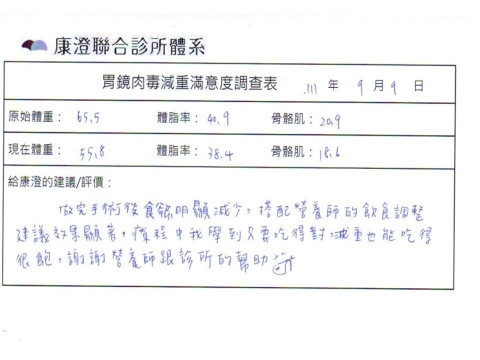 康澄聯合診所體系
胃鏡肉毒減重滿意度調查表 111 年 9 月 9 日
原始體重： 65.5 體脂率： 40.9 骨骼肌： 20.9
現在體重： 55.8 體脂率： 38.4 骨骼肌： 18.6
給康澄的建議/評價：
做完手術後食慾明顯減少，搭配營養師的飲食調整
建議效果顯著，療程中我學到只要吃得對，減重也能吃得
很飽，謝謝營養師跟診所的幫助